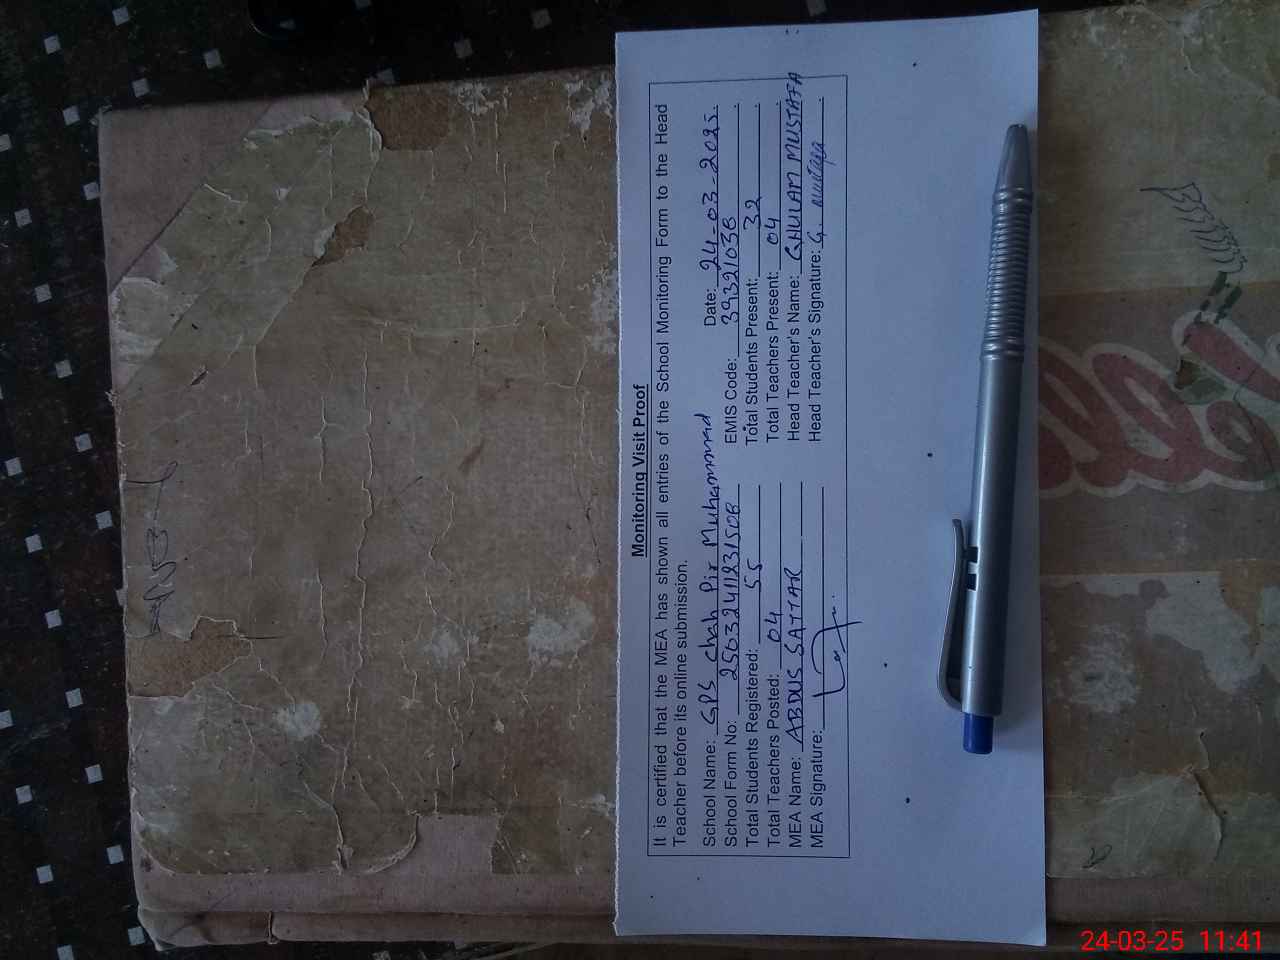 Monitoring Visit Proof
It is certified that the MEA has shown all entries of the School Monitoring Form to the Head
Teacher before its online submission.
School Name: GPS Chah Pir Muhammad Date: 24-03-2025.
School Form No: 25032411231508 EMIS Code: 39321038
Total Students Registered: 55 Total Students Present: 32
Total Teachers Posted: 04 Total Teachers Present: 04
MEA Name: ABDUS SATTAR Head Teacher's Name: GHULAM MUSTAFA
MEA Signature: Head Teacher's Signature: G. Mustafa
24-03-25 11:41